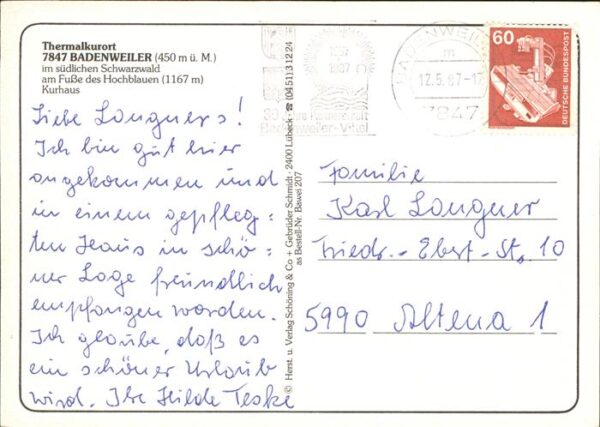 Thermalkurort
7847 BADENWEILER (450 m ü. M.)
im südlichen Schwarzwald
am Fuße des Hochblauen (1167 m)
Kurhaus
Liebe Langners!
Ich bin gut hier
angekommen und
in einem gepfleg=
ten Haus in schö=
ner Lage freundlich
empfangen worden.
Ich glaube, daß es
ein schöner Urlaub
wird. Ihr Hilde Teske
© Herst. u. Verlag Schöning & Co + Gebrüder Schmidt · 2400 Lübeck · ☎ (04 51) 3 12 24
as Bestell-Nr. Bawei 207
Badenweiler-Vital
BADENWEILER
m
12.5.87-17
7847
60
DEUTSCHE BUNDESPOST
Familie
Karl Langner
Friedr.-Ebert-St. 10
5990 Altena 1